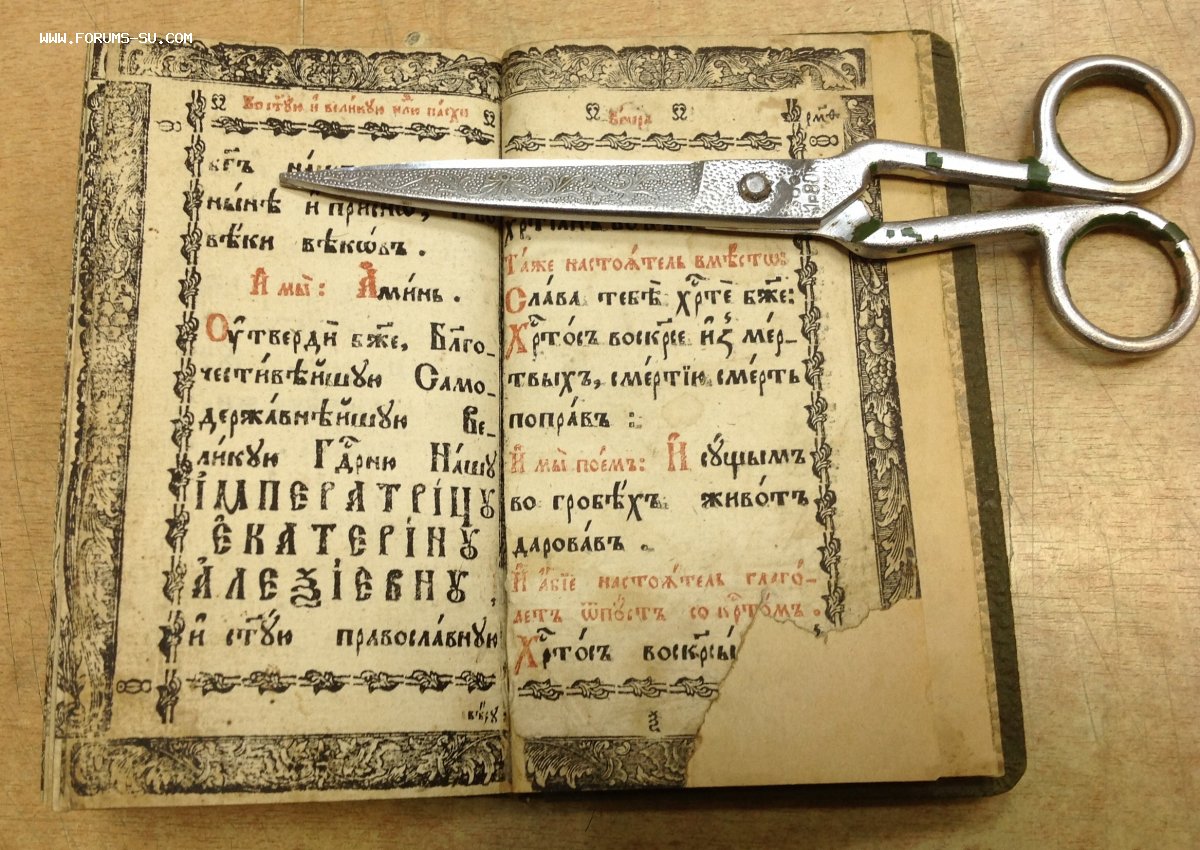 WWW.FORUMS-SU.COM
Во ст҃ꙋю и҆ великꙋю нлю пасхи
бг҃ъ
ны́нѣ и҆ при́снѡ,
вѣ́ки вѣкѡ́въ .
И҆ мы̀ : А҆ми́нь .
Оу҆твердѝ бж҃е, Бл҃го-
чести́вѣйшꙋю Само-
держа́внѣйшꙋю Ве-
ли́кꙋю Гдⷭ҇рню На́шꙋ
І҆МПЕРАТРІ́ЦꙊ
Е҆КАТЕРІ́НꙊ
А҆ЛЕѮІ́ЕВНꙊ ,
и҆ ст҃ꙋ́ю правосла́внꙋю
вѣ́рꙋ
Ве́чера
рм҃ѳ
Та́же настоѧ́тель вмѣ́стѡ:
Сла́ва тебѣ̀ хрⷭ҇тѐ бж҃е:
Хрⷭ҇то́съ воскр҃се и҆з̾ ме́р-
твыхъ, сме́ртїю сме́рть
попра́въ :
И҆ мы̀ пое́мъ: И҆ сꙋ́щымъ
во гробѣ́хъ живо́тъ
дарова́въ .
И҆ а҆́бїе настоѧ́тель глаго́-
летъ ѿпꙋ́стъ со крⷭ҇то́мъ .
Хрⷭ҇то́съ воскр҃сы́й
ѯ